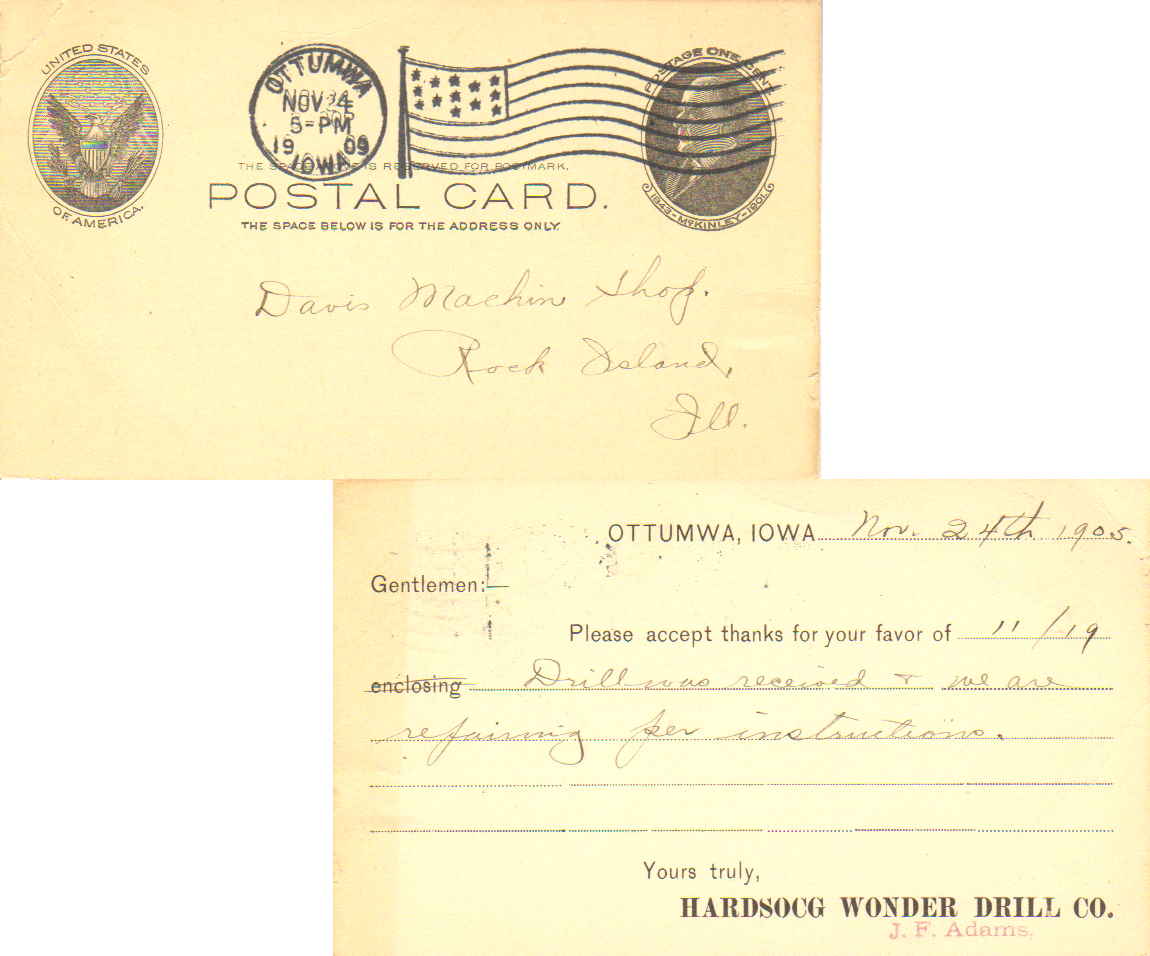 UNITED STATES
OF AMERICA.
OTTUMWA
NOV 24
5-PM
1909
IOWA
POSTAGE ONE CENT
1843-McKINLEY-1901
THE SPACE IS RESERVED FOR POSTMARK.
POSTAL CARD.
THE SPACE BELOW IS FOR THE ADDRESS ONLY.
Davis Machin Shop.
Rock Island,
Ill.
OTTUMWA, IOWA Nov. 24th 1905.
Gentlemen:—
Please accept thanks for your favor of 11/19
enclosing Drill was received & we are
repairing per instructions.
Yours truly,
HARDSOCG WONDER DRILL CO.
J. F. Adams.